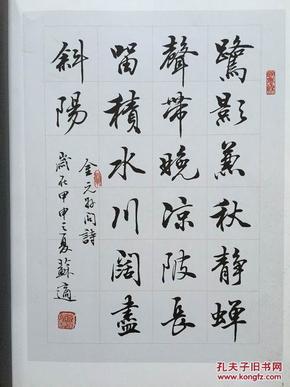 鷺影兼秋靜蟬
聲帶晚涼陂長
留積水川闊盡
斜陽
金元好問詩
歲在甲申之夏蘇適
孔夫子旧书网